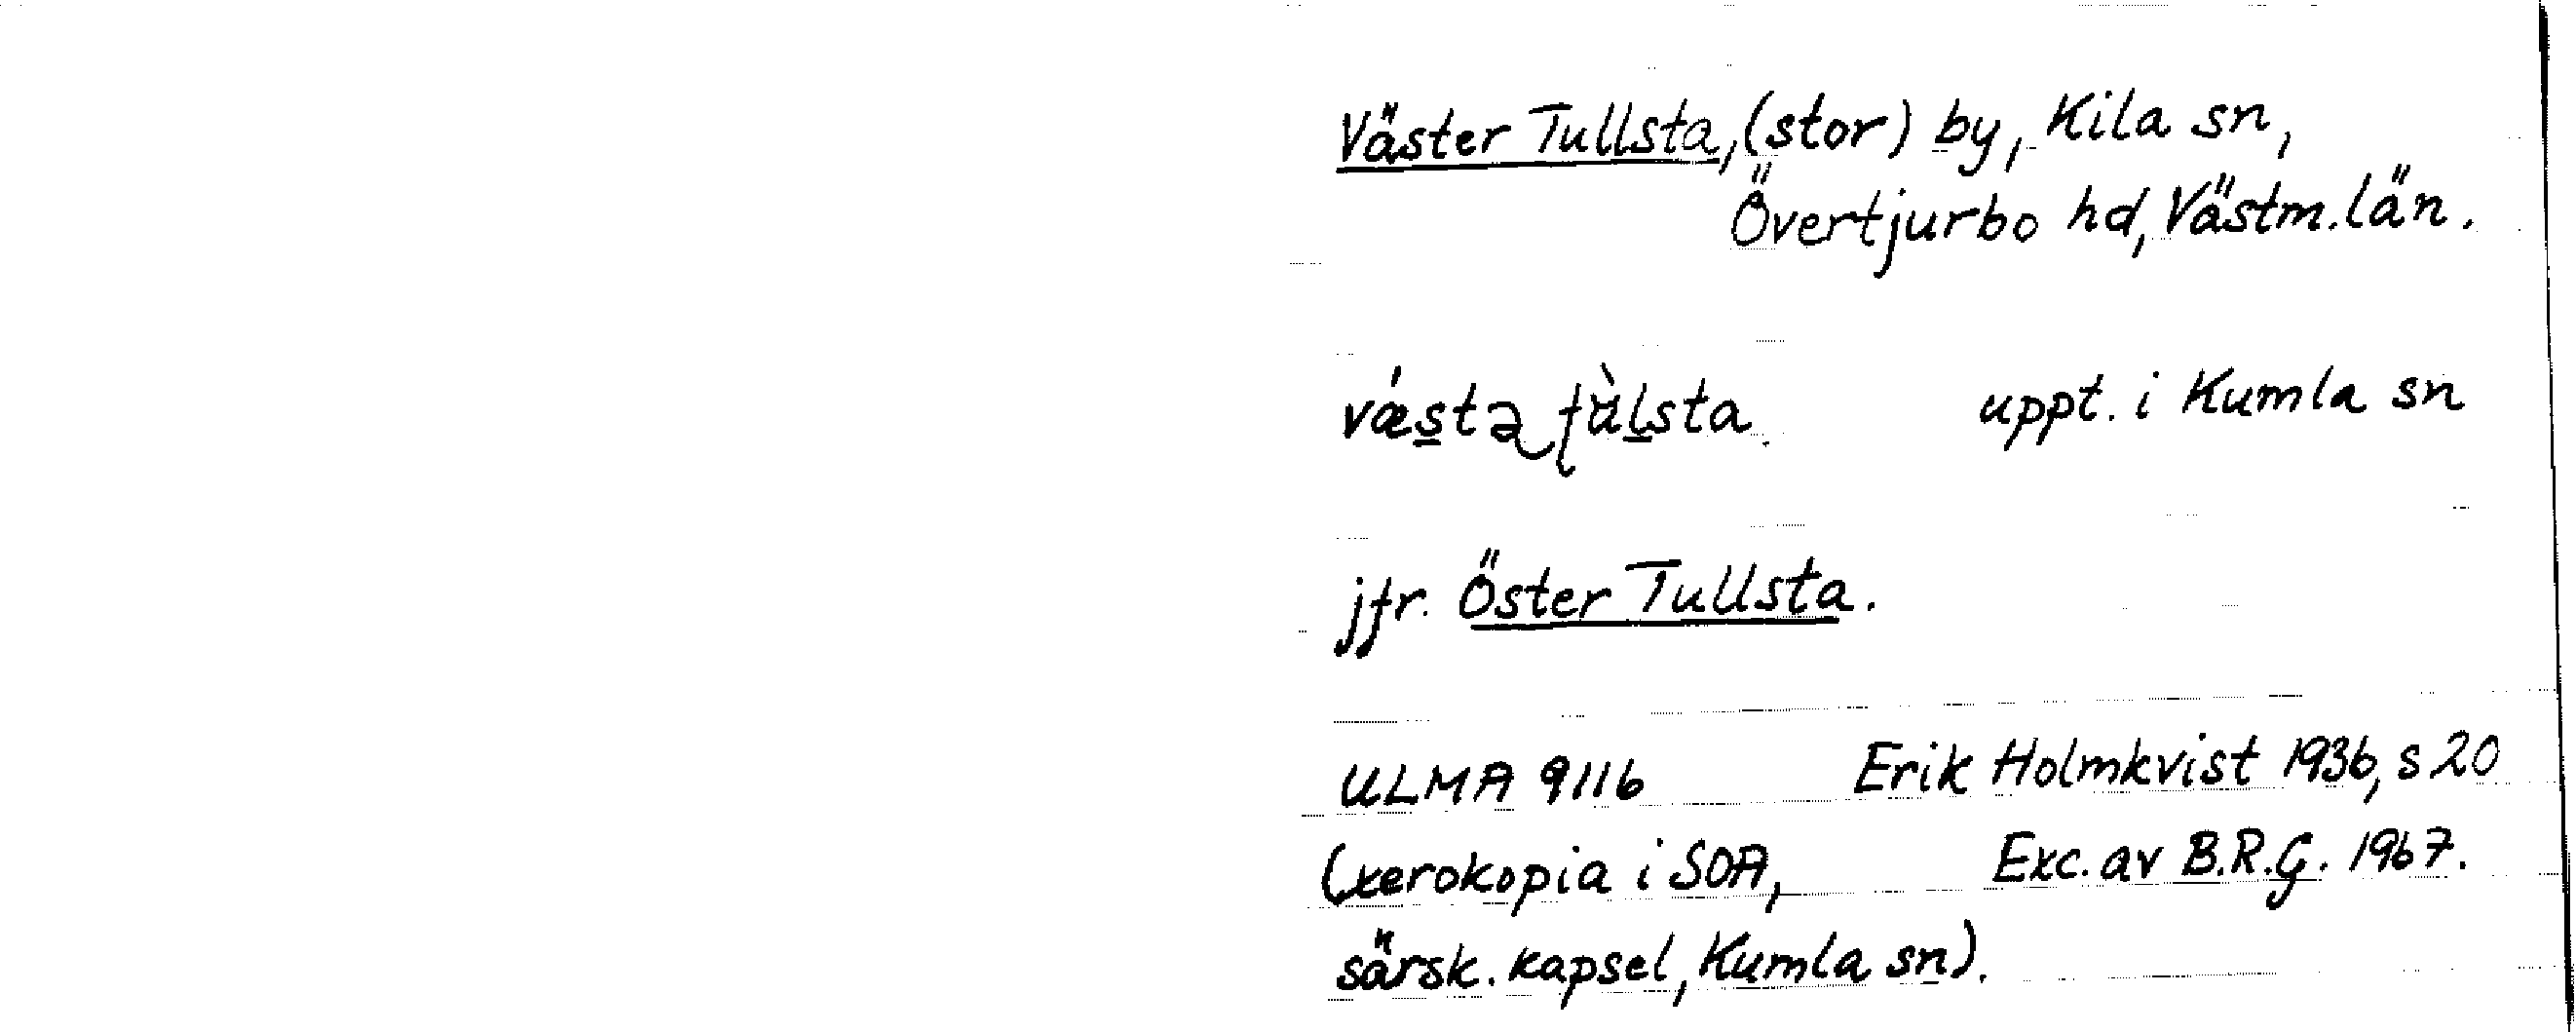 Väster Tullsta, (stor) by, Kila sn,
Övertjurbo hd, Västm. län.
vǽs̲tə ʈùl̲sta uppt. i Kumla sn
jfr. Öster Tullsta.
ULMA 9116 Erik Holmkvist 1936, s 20
(xerokopia i SOA, Exc. av B.R.G. 1967.
särsk. kapsel, Kumla sn).